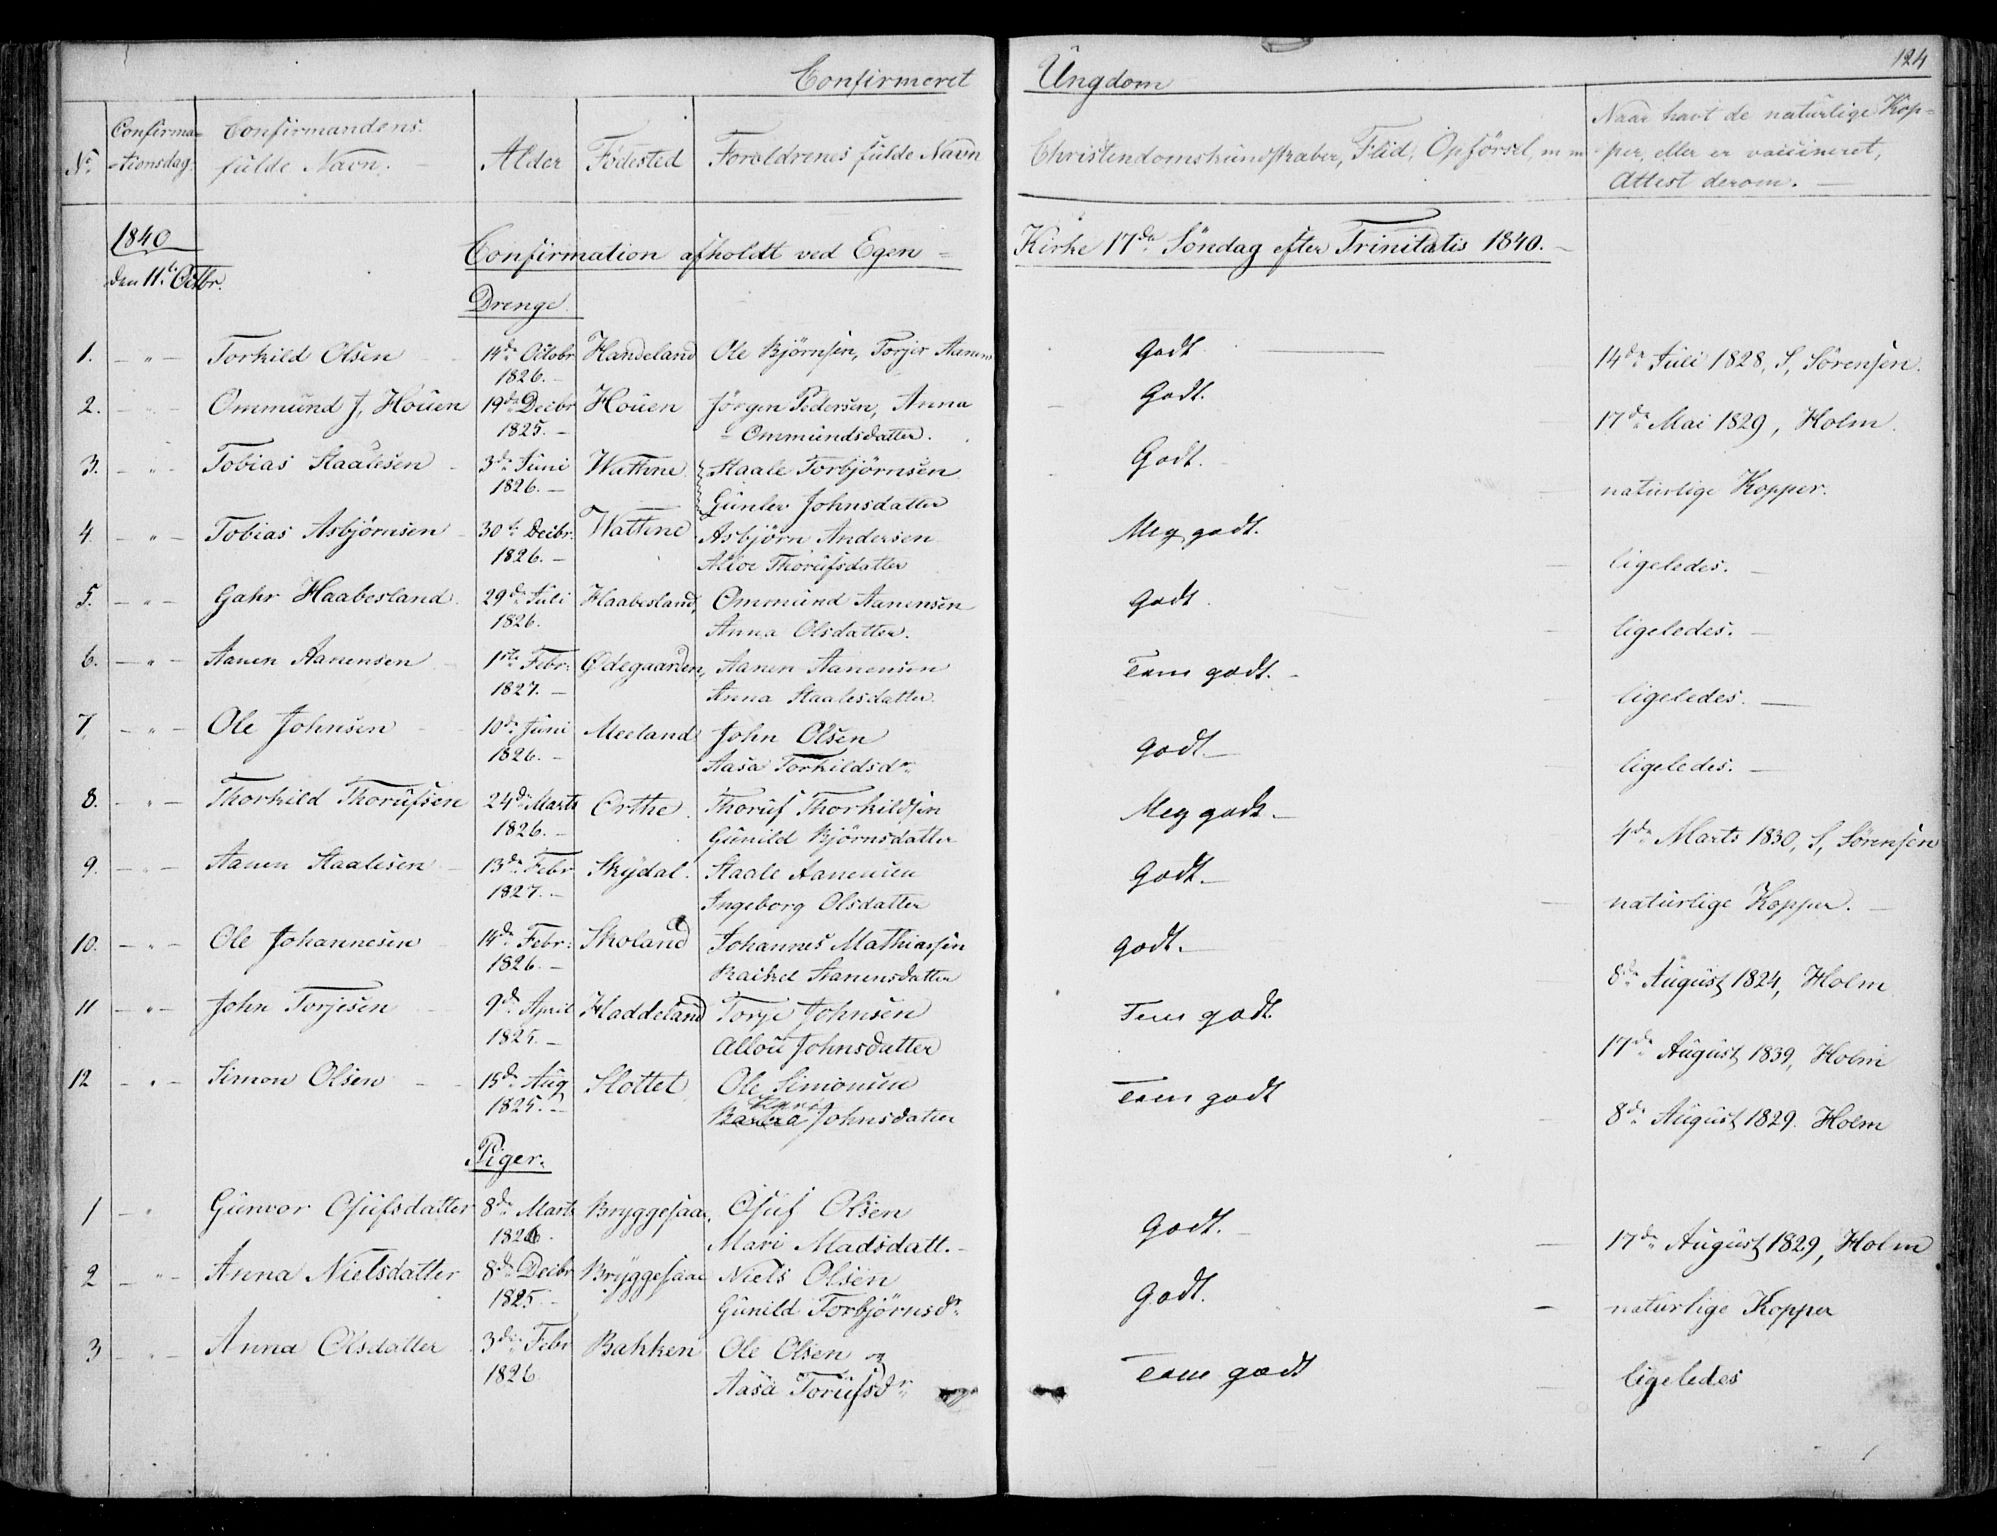 Confirmeret Ungdom
124
Nº
Confirma-
tionsdag.
Confirmandens
fulde Navn.
Alder
Födested
Foreldrenes fulde Navn
Christendomskundskaber, Flid, Opförsel, m m
Naar havt de naturlige Kop-
per, eller er vaccineret,
Attest derom. —
1840
Confirmation afholdt ved Egen = Kirke 17de Söndag efter Trinitatis 1840. —
den 11te Octbr.
Drenge.
1. — " — Torkild Olsen 14de Octobr Handeland Ole Björnsen, Torjer Aanens Godt 14de Juli 1828, S, Sörensen.
1826. —
2. — " — Ommund J, Houen 19de Decbr Houen Jörgen Pedersen, Anna Godt. 17de Mai 1829, Holm.
1825. — Ommundsdatter.
3. — " — Tobias Staalesen 3de Juni Wathne Staale Torbjörnsen Godt. naturlige Kopper.
1826. — Gunler Johnsdatter
4. — " — Tobias Asbjörnsen 30te Decbr. Wathne Asbjörn Andersen Meg godt. ligeledes. —
1826. — Thorufsdatter
5. — " — Gahr Haabesland 29de Juli Haabesland, Ommund Aanensen Godt. ligeledes. —
1826. Anna Olsdatter.
6. — " — Aanen Aanensen 1ste Febr: Ødegaarden, Aanen Aanensen Tem godt. — ligeledes. —
1827. — Anna Staalesdatter
7. — " — Ole Johnsen 10de Juni Meeland John Olsen Godt. — ligeledes. —
1826. — Aasa Torkildsdr.
8. — " — Thorkild Thorufsen 24de Marts Orthe. Thoruf Thorkildsen Meg godt. — 4de Marts 1830, S, Sörensen
1826. — Gunild Björnsdatter
9. — " — Aanen Staalesen 13de Febr Skydal. Staale Aanensen Godt. — naturlige Kopper. —
1827. — Ingeborg Olsdatter
10. — " — Ole Johannesen 14de Febr: Skoland Johannes Mathiassen godt. — 8de August 1824, Holm
1826. — Rachel Aanensdatter
11 — " — John Torjesen 9de April Haddeland Torje Johnsen Tem godt. 17de August 1839, Holm
1825. — Allou Johnsdatter
12 — " — Simon Olsen 15de Aug Slottet Ole Simonsen Tem godt 8de August 1829. Holm
1825. — Karen Johnsdatter
Piger.
1 — " Gunvor Osufsdatter 8de Marts Bryggesaae, Osuf Olsen Godt. 17de August 1829, Holm
1826. Mari Madsdatt. —
2 — " — Anna Nielsdatter 8de Decbr Bryggesaae Niels Olsen Godt. — naturlige Kopper
1825. — Gunild Torbjörnsdr.
3 — " — Anna Olsdatter 3die Febr Bakken Ole Olsen og Tem godt ligeledes
1826 Aasa Torufsdr.